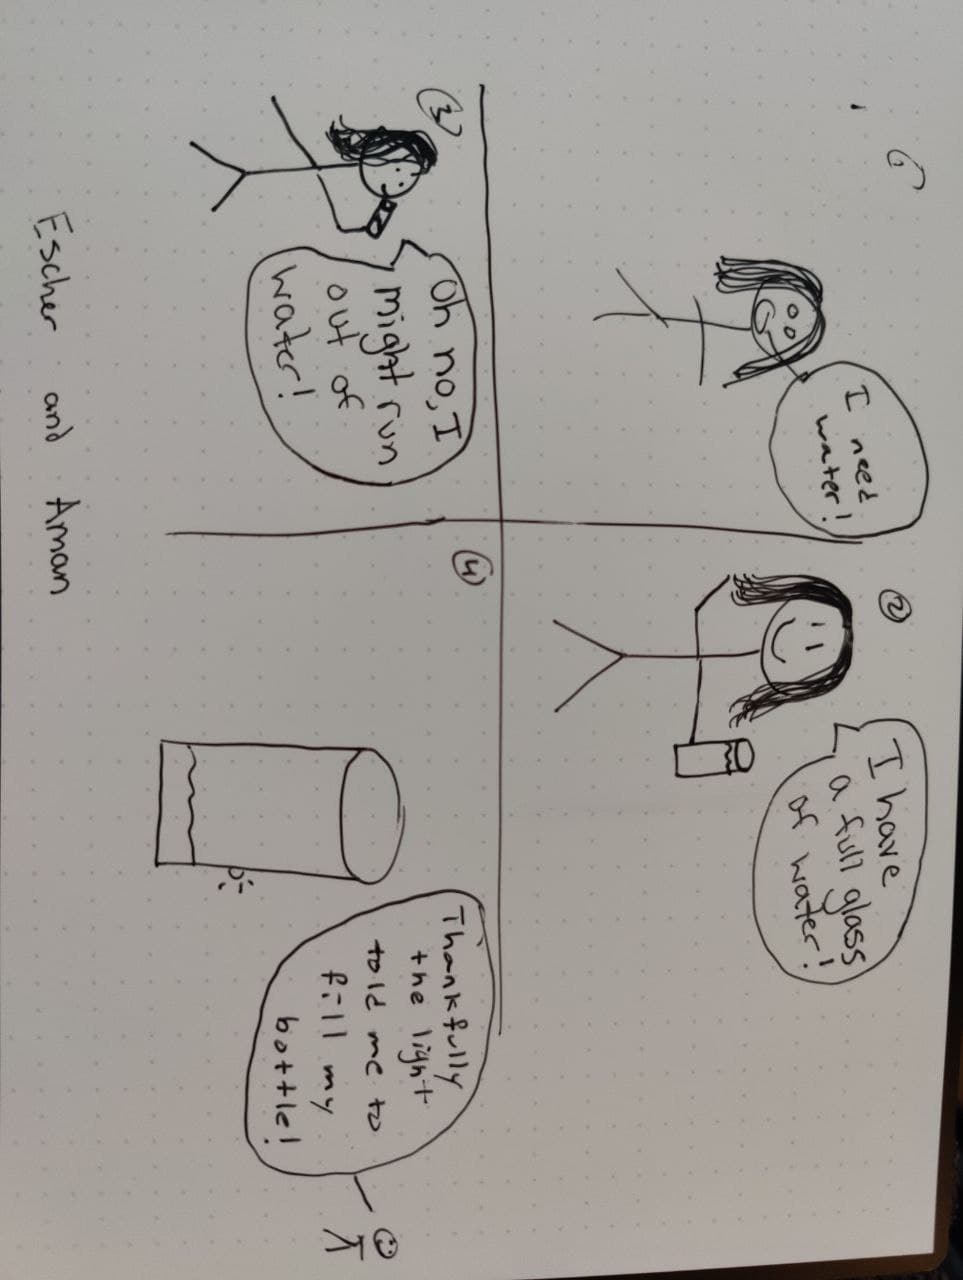 I need
water!
2
I have
a full glass
of water!
3
Oh no, I
might run
out of
water!
4
Thankfully
the light
told me to
fill my
bottle!
Escher and Aman